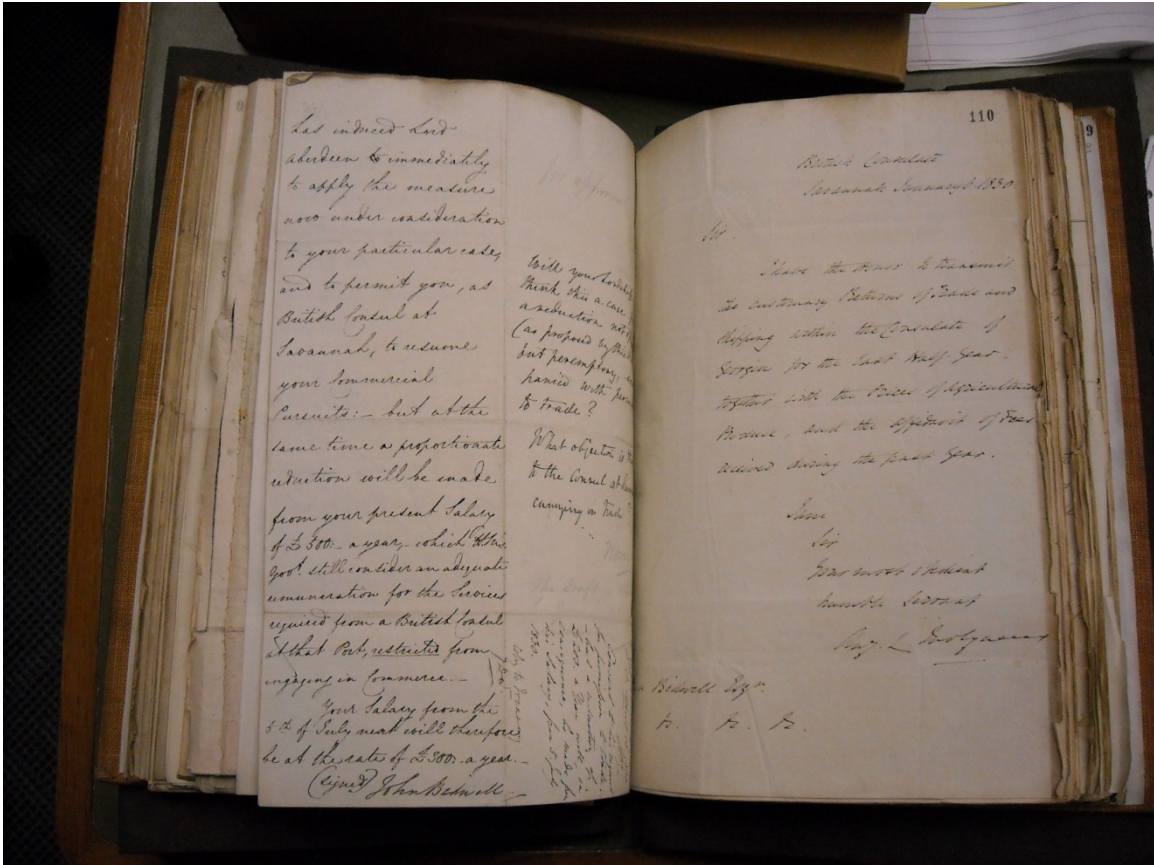 has induced Lord
Aberdeen to immediately
to apply the measure
now under consideration
to your particular case,
and to permit you, as
British Consul at
Savannah, to resume
your Commercial
Pursuits: – but at the
same time a proportionate
reduction will be made
from your present Salary
of £500:– a year, – which
Govt. still consider an adequate
remuneration for the Services
required from a British Consul
at that Port, restricted from
engaging in Commerce. –
Your Salary from the
5th of July next will therefore
be at the rate of £300:– a year. –
(signed) John Bidwell
Will your Lordship
think this a case
a reduction not
(as proposed by this
but peremptory,
panied with
to trade?
What objection is
to the Consul at
carrying on Trade
110
British Consulate
Savannah January 6 1830
Sir.
I have the Honor to transmit
the customary Returns of Trade and
Shipping within the Consulate of
Georgia for the last Half-Year.
together with the Prices of Agricultural
Produce, and the Affidavit of Fees
received during the past Year.
I am
Sir
Your most obedient
humble Servant
Bidwell Esqr.
&c. &c. &c.
9